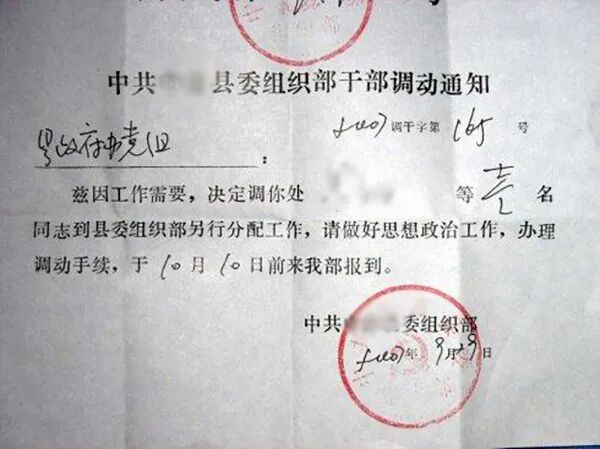 中共 县委组织部干部调动通知
县政府办党组：
调干字第165号
兹因工作需要，决定调你处 等壹名
同志到县委组织部另行分配工作，请做好思想政治工作，办理
调动手续，于10月10日前来我部报到。
中共 委组织部
年9月29日